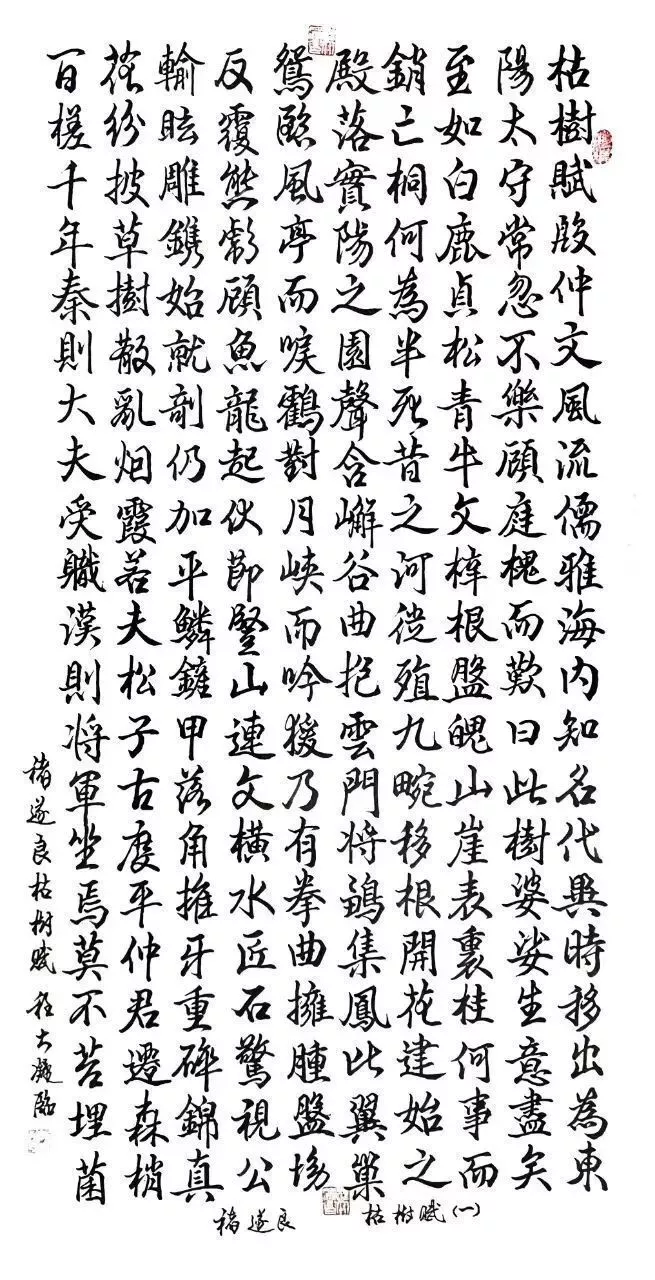 枯樹賦殷仲文風流儒雅海内知名代異時移出為東
陽太守常忽不樂顧庭槐而歎曰此樹婆娑生意盡矣
至如白鹿貞松青牛文梓根盤魄山崖表裏桂何事而
銷亡桐何為半死昔之河徙殖九畹移根開花建始之
殿落實陽之園聲含嶰谷曲抱雲門将鶵集鳳比翼巢
鴛臨風亭而唳鶴對月峽而吟猨乃有拳曲擁腫盤坳
反覆熊彪顧魚龍起伏節豎山連文橫水匠石驚視公
輸眩雕鐫始就剞仍加平鱗鏟甲落角摧牙重碎錦真
花紛披草樹散亂烟霞若夫松子古度平仲君遷森梢
百槎千年秦則大夫受職漢則将軍坐焉莫不苔埋菌
褚遂良枯树賦 臨
枯树賦(一)
褚遂良